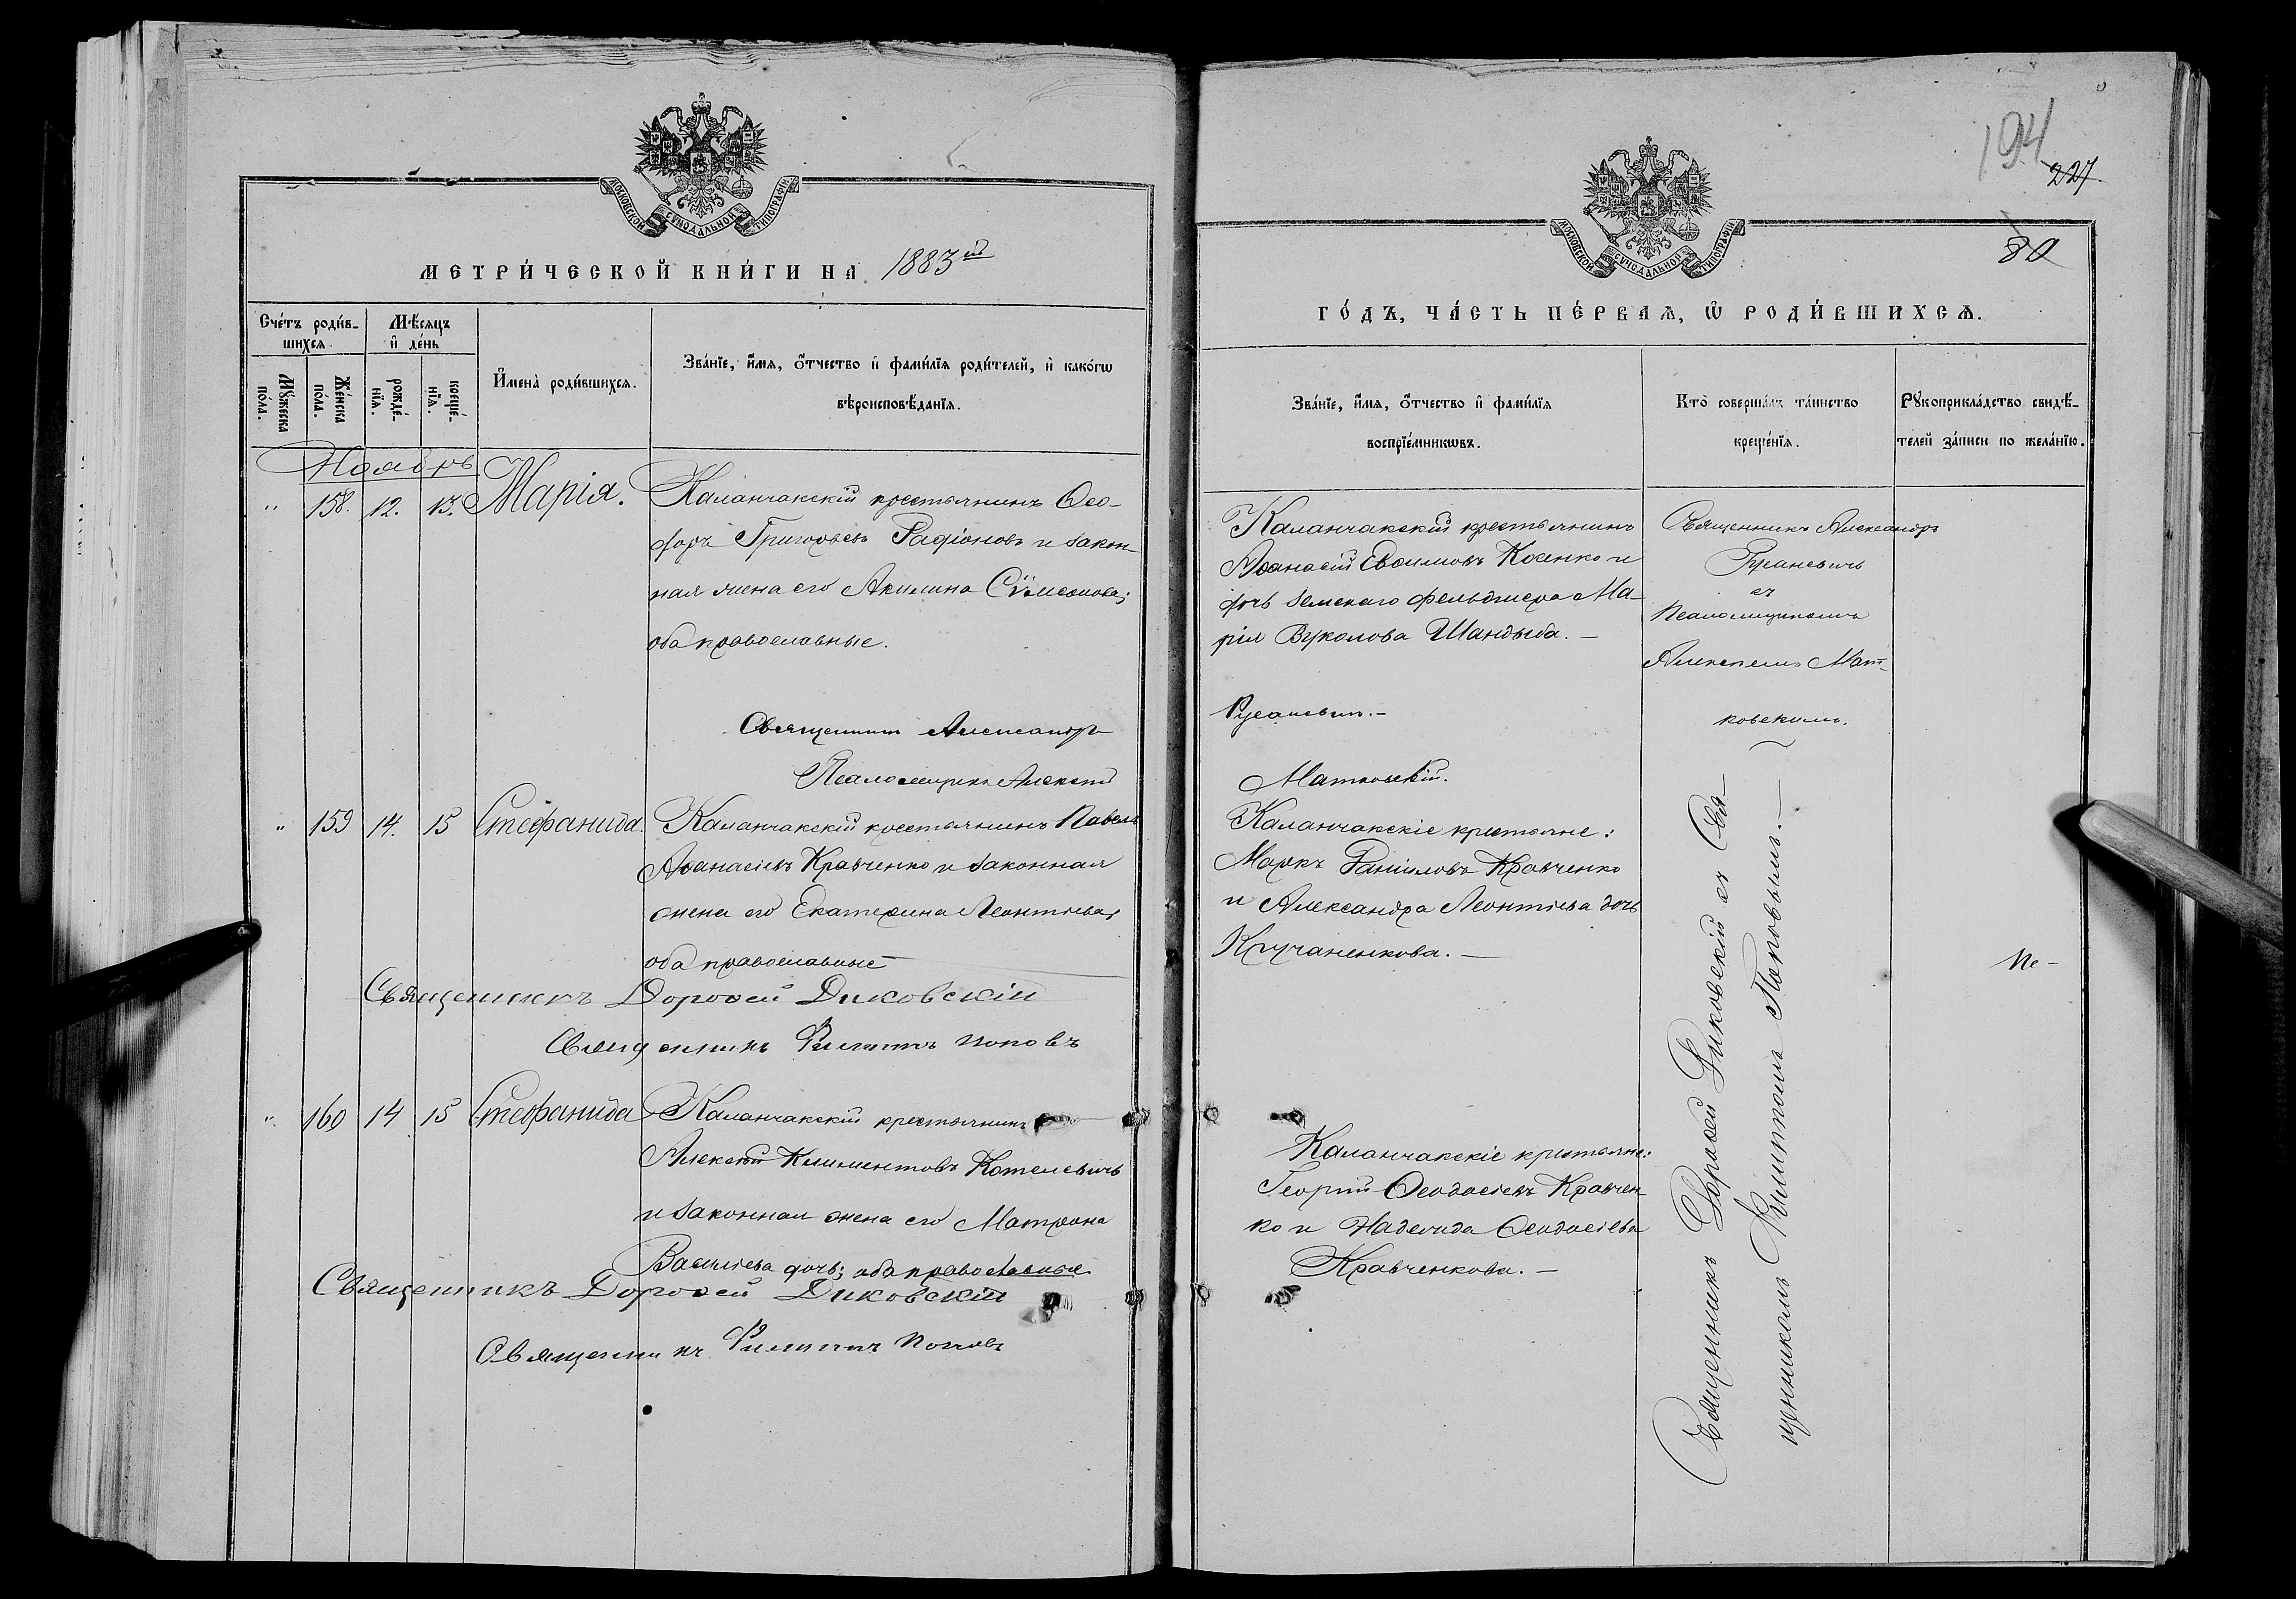 МОСКОВСКОЙ СѴНОДАЛЬНОЙ ТИПОГРАФІИ
МЕТРИ́ЧЕСКОЙ КНИ́ГИ НА 1883 ій
Сче́тъ роди́в-
шихсѧ
Мѣ́сѧцъ
и҆ де́нь
Мꙋ́жеска
по́ла.
Же́нска
по́ла.
рожде́-
нїѧ.
креще́-
нїѧ.
И҆мена̀ роди́вшихсѧ.
Зва́нїе, и҆́мѧ, ѻ҆́тчество и҆ фами́лїѧ роди́телей, и҆ како́гѡ
вѣроисповѣ́данїѧ.
Ноябрь
" 158. 12. 13. Марія. Каланчакскій крестьянинъ Ѳео-
доръ Григорьевъ Радіоновъ и закон-
ная жена его Акилина Сѵмеонова;
оба православные.
Священникъ Александръ
Псаломщикъ Алексѣй
" 159 14. 15 Стефанида. Каланчакскій крестьянинъ Павелъ
Аѳанасіевъ Кравченко и законная
жена его Екатерина Леонтіева,
оба православные
Священникъ Дороѳей Диковскій
Священникъ Филиппъ Поповъ
" 160 14 15 Стефанида Каланчакскій крестьянинъ
Алексѣй Климентовъ Котелевичъ
и законная жена его Матрона
Василіева дочь; оба православные
Священникъ Дороѳей Диковскій
Священникъ Филиппъ Поповъ
194
227
80
МОСКОВСКОЙ СѴНОДАЛЬНОЙ ТИПОГРАФІИ
ГО́ДЪ, ЧА́СТЬ ПЕ́РВАѦ, Ѡ҆ РОДИ́ВШИХСѦ.
Зва́нїе, и҆́мѧ, ѻ҆́тчество и҆ фами́лїѧ
воспрїе́мникѡвъ.
Кто̀ соверша́лъ та́инство
креще́нїѧ.
Рꙋкоприкла́дство свидѣ́-
телей за́писи по жела́нїю.
Каланчакскій крестьянинъ
Аѳанасій Евѳимовъ Коенко и
дочь земскаго фельдшера Ма-
рія Вуколова Шандыба. —
Русаневичъ. —
Матковскій.
Священникъ Александръ
Русаневичъ
съ
Псаломщикомъ
Алексѣемъ Мат-
ковскимъ.
Каланчакскіе крестьяне:
Маркъ Даниловъ Кравченко
и Александра Леонтіева дочь
Кручаненкова. —
Каланчакскіе крестьяне:
Георгій Ѳеодосіевъ Кравчен-
ко и Надежда Ѳеодосіева
Кравченкова. —
Священникъ Дороѳей Диковскій съ Свя-
щенникомъ Филиппомъ Поповымъ. —